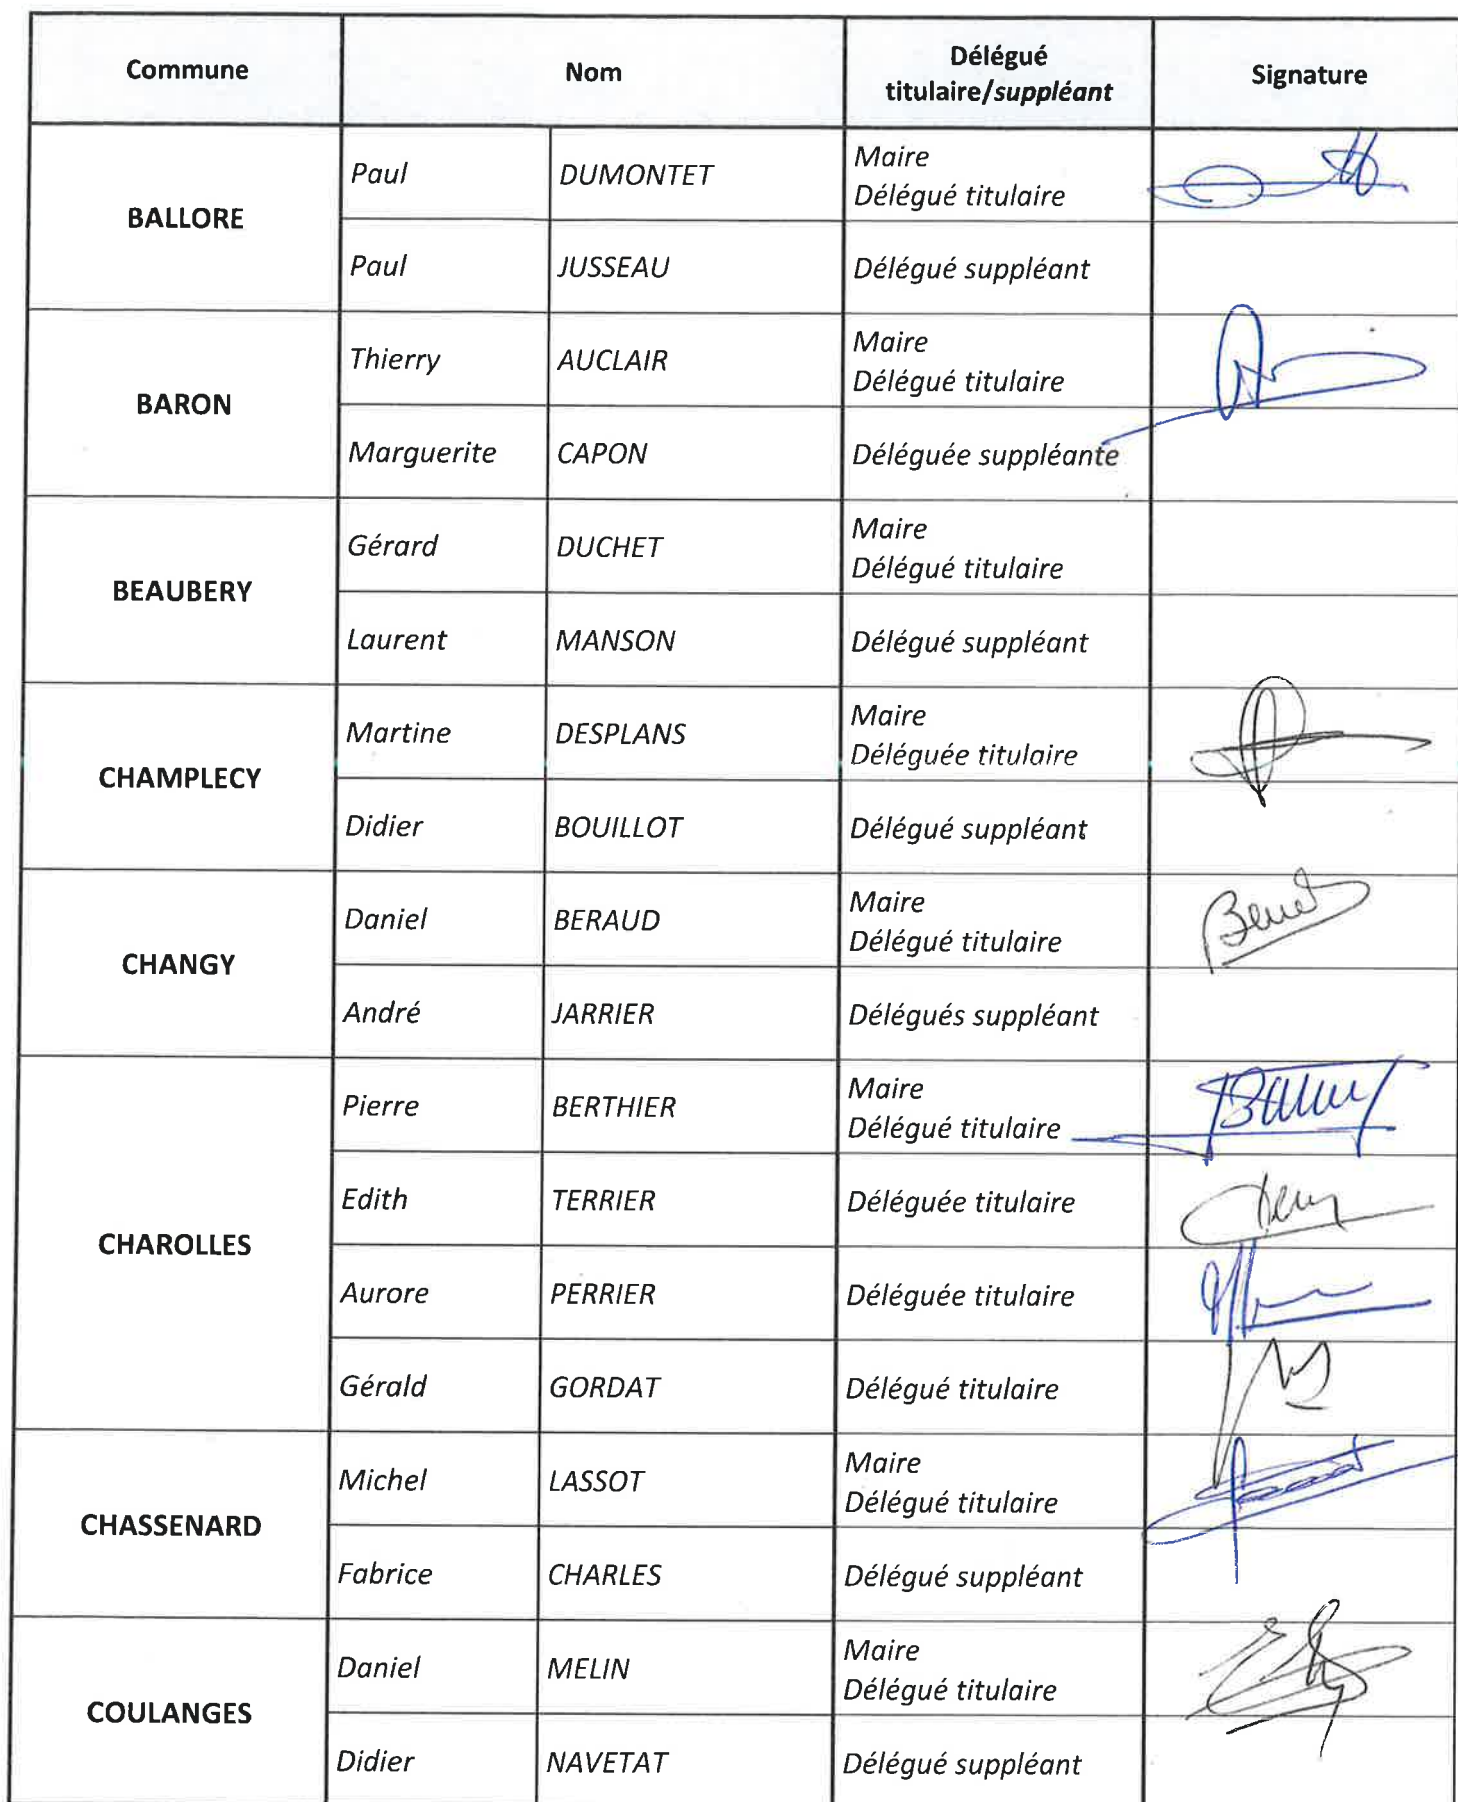 Commune
Nom
Délégué
titulaire/suppléant
Signature
BALLORE
Paul DUMONTET
Maire
Délégué titulaire
Paul JUSSEAU
Délégué suppléant
BARON
Thierry AUCLAIR
Maire
Délégué titulaire
Marguerite CAPON
Déléguée suppléante
BEAUBERY
Gérard DUCHET
Maire
Délégué titulaire
Laurent MANSON
Délégué suppléant
CHAMPLECY
Martine DESPLANS
Maire
Déléguée titulaire
Didier BOUILLOT
Délégué suppléant
CHANGY
Daniel BERAUD
Maire
Délégué titulaire
André JARRIER
Délégués suppléant
CHAROLLES
Pierre BERTHIER
Maire
Délégué titulaire
Edith TERRIER
Déléguée titulaire
Aurore PERRIER
Déléguée titulaire
Gérald GORDAT
Délégué titulaire
CHASSENARD
Michel LASSOT
Maire
Délégué titulaire
Fabrice CHARLES
Délégué suppléant
COULANGES
Daniel MELIN
Maire
Délégué titulaire
Didier NAVETAT
Délégué suppléant